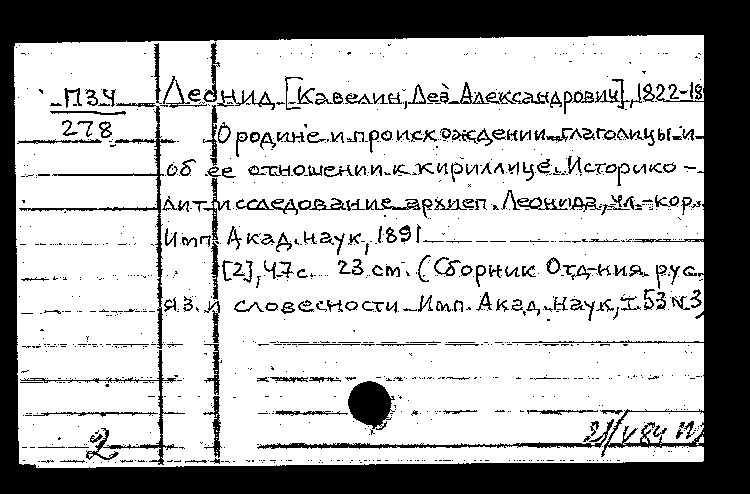 ПЗ4
278
Леонид, [Кавелин, Лев Александрович], 1822-18
О родине и происхождении глаголицы и
об ее отношении к кириллице. Историко-
лит исследование архиеп. Леонида, чл.-кор.
Имп. Акад. наук, 1891
[2], 47 с. 23 см. (Сборник Отд-ния рус.
яз. и словесности Имп. Акад. наук, т. 53 №3)
2